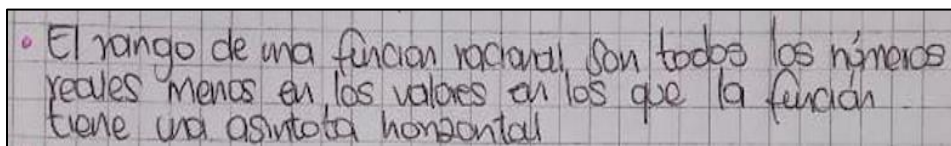 • El rango de una función racional, son todos los números
reales menos en los valores en los que la función
tiene una asíntota horizontal